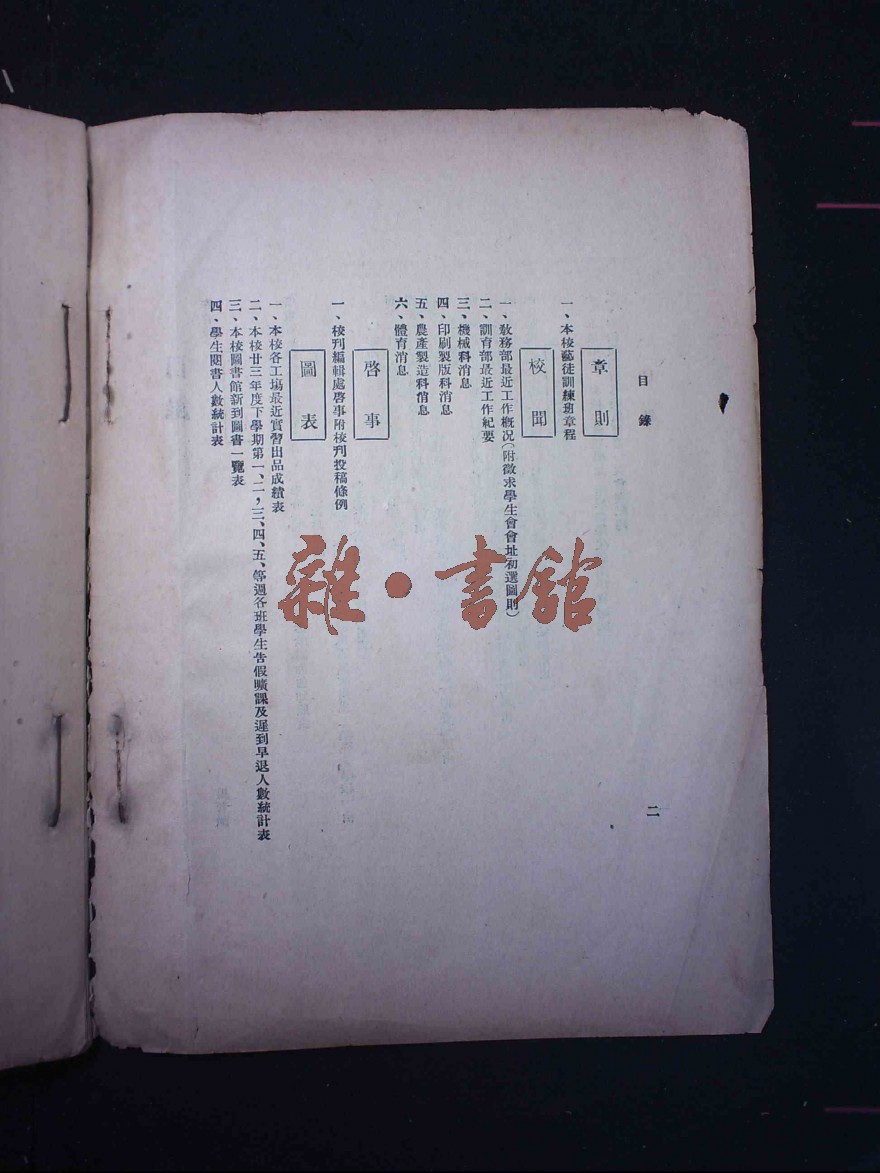 目錄
二
章則
一、本校藝徒訓練班章程
校聞
一、教務部最近工作概况(附徵求學生會會址初選圖則)
二、訓育部最近工作紀要
三、機械科消息
四、印刷製版科消息
五、農產製造科消息
六、體育消息
啓事
一、校刊編輯處啓事附校刊投稿條例
圖表
一、本校各工場最近實習出品成績表
二、本校廿三年度下學期第一、二，三、四、五、等週各班學生告假曠課及遲到早退人數統計表
三、本校圖書館新到圖書一覽表
四、學生閱書人數統計表
雜·書館